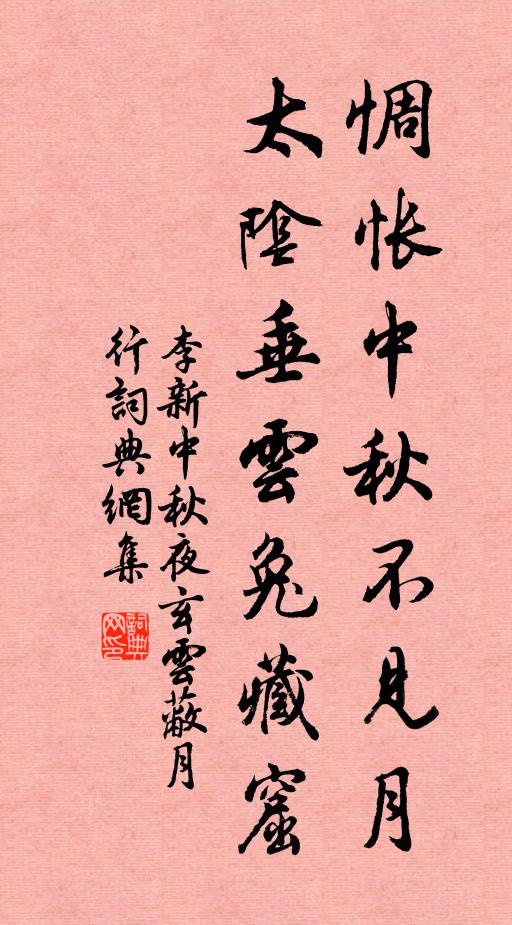 惆悵中秋不見月
太陰垂雲兔藏窟
李新中秋夜玄雲蔽月
行詞典網集
詞典网印